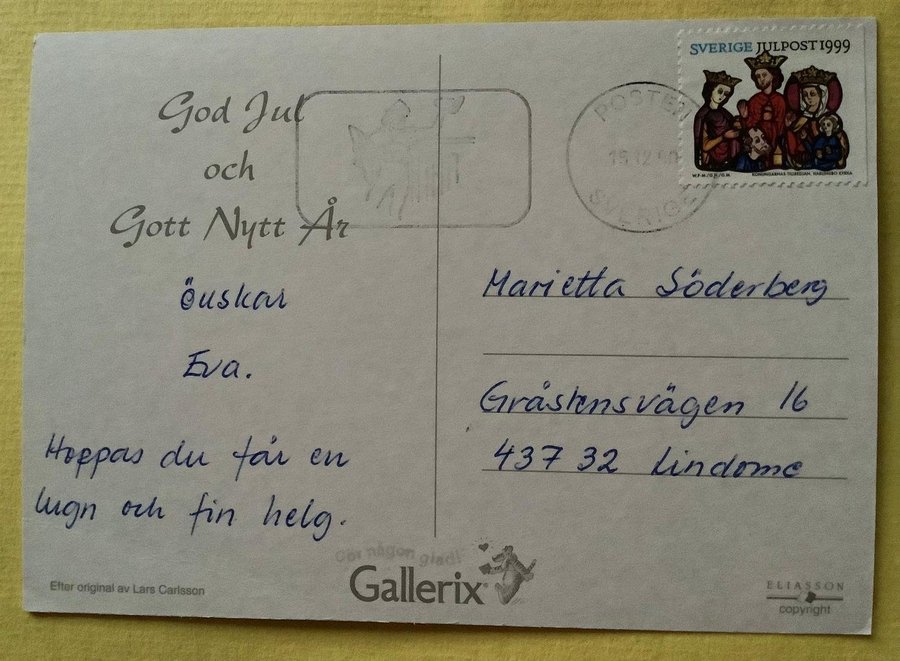 God Jul
och
Gott Nytt År
önskar
Eva.
Hoppas du får en
lugn och fin helg.
Efter original av Lars Carlsson
Gör någon glad!
Gallerix
POSTEN
15 12
SVERIGE
SVERIGE JULPOST 1999
Marietta Söderberg
Gråstensvägen 16
437 32 Lindome
ELIASSON
copyright